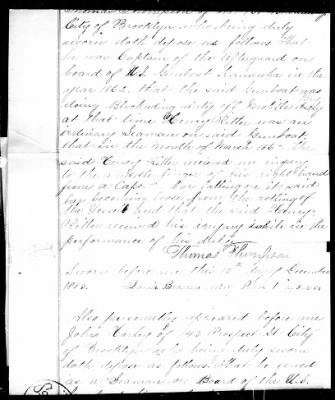 City of Brooklyn who being duly
sworn doth depose as follows that
he was Captain of the Afterguard on
board of U.S. Gunboat Kanawha in the
year 1862. that the said Gunboat was
doing Blockading duty off Mobile
at that time Henry was an
ordinary Seaman on said Gunboat,
that in the month of March 1862 the
said Henry received an injury
to the middle finger of his right hand
from a Caps Bar falling on it said
bar becoming loose from the rolling of
the vessel and that the said Henry
received his injury while in the
performance of his duty
Thomas Thompson
Sworn before me this 12th day of December
Also personally appeared before me
John of 43 Prospect St City
of Brooklyn who being duly sworn
doth depose as follows. That he served
as a Seaman on Board of the U.S.